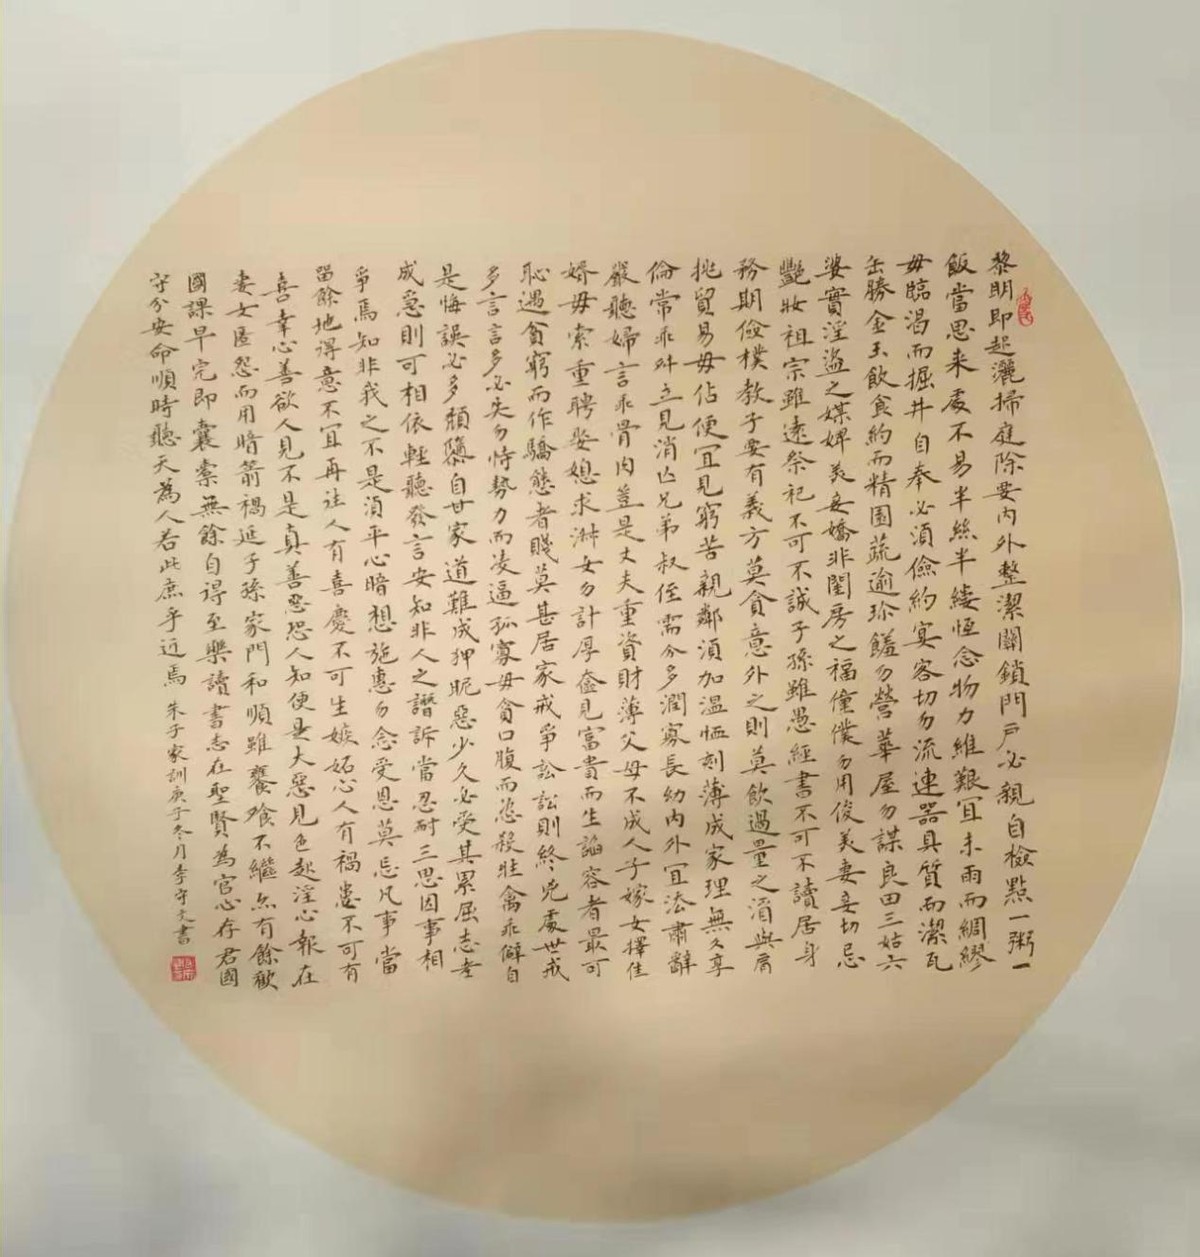 黎明即起灑掃庭除要內外整潔關鎖門戶必親自檢點一粥一
飯當思来處不易半絲半縷恆念物力維艱宜未雨而綢繆
毋臨渴而掘井自奉必須儉約宴客切勿流連器具質而潔瓦
缶勝金玉飲食約而精園蔬逾珍饈勿營華屋勿謀良田三姑六
婆實淫盜之媒婢美妾嬌非閨房之福僮僕勿用俊美妻妾切忌
艷妝祖宗雖遠祭祀不可不誠子孫雖愚經書不可不讀居身
務期儉樸教子要有義方莫貪意外之則莫飲過量之酒與肩
挑貿易毋佔便宜見窮苦親鄰須加溫恤刻薄成家理無久享
倫常乖舛立見消亡兄弟叔侄需分多潤寡長幼內外宜法肅辭
嚴聽婦言乖骨肉豈是丈夫重資財薄父母不成人子嫁女擇佳
婿毋索重聘娶媳求淑女勿計厚奩見富貴而生諂容者最可
恥遇貧窮而作驕態者賤莫甚居家戒爭訟訟則終兇處世戒
多言言多必失勿恃勢力而凌逼孤寡毋貪口腹而恣殺牲禽乖僻自
是悔誤必多頹隳自甘家道難成狎昵惡少久必受其累屈志老
成急則可相依輕聽發言安知非人之譖訴當忍耐三思因事相
爭焉知非我之不是須平心暗想施惠勿念受恩莫忘凡事當
留餘地得意不宜再往人有喜慶不可生嫉妬心人有禍患不可有
喜幸心善欲人見不是真善惡恐人知便是大惡見色起淫心報在
妻女匿怨而用暗箭禍延子孫家門和順雖饔飧不繼亦有餘歡
國課早完即囊橐無餘自得至樂讀書志在聖賢為官心存君國
守分安命順時聽天為人若此庶乎近焉 朱子家訓庚子冬月李守文書